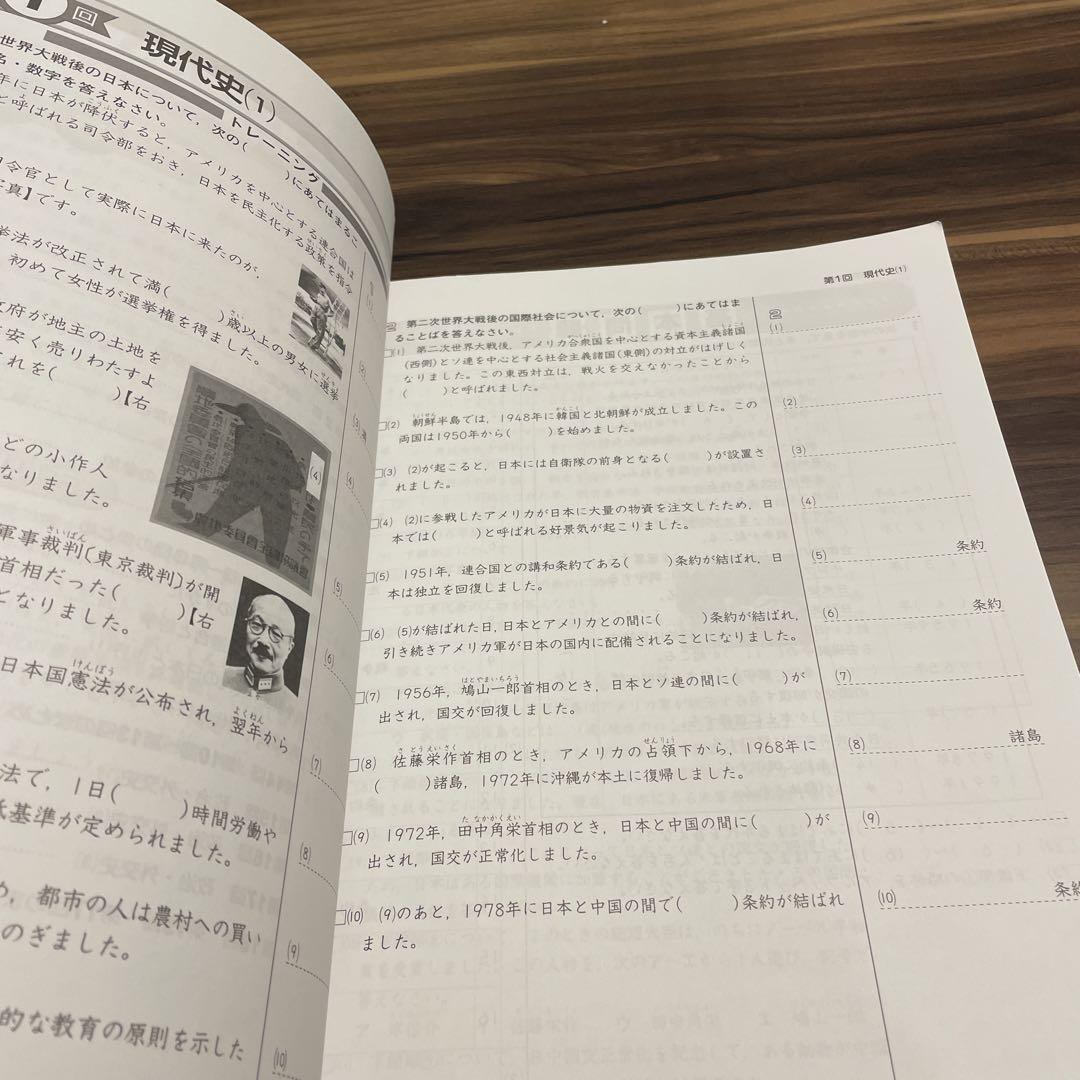 1回
現代史(1)
トレーニング
世界大戦後の日本について，次の(　　)にあてはまるこ
名・数字を答えなさい。
年に日本が降伏すると，アメリカを中心とする連合国は
と呼ばれる司令部をおき，日本を民主化する政策を指令
司令官として実際に日本に来たのが，
写真】です。
挙法が改正されて満(　　)歳以上の男女に選挙
，初めて女性が選挙権を得ました。
政府が地主の土地を
に安く売りわたすよ
これを(　　)【右
どの小作人
なりました。
軍事裁判(東京裁判)が開
首相だった(　　)【右
となりました。
日本国憲法が公布され，翌年から
法で，1日(　　)時間労働や
低基準が定められました。
め，都市の人は農村への買い
のぎました。
的な教育の原則を示した
(1)
(2)
(3)満
(4)
(5)
(6)
(7)
(8)
(9)
(10)
第1回　現代史(1)
2　第二次世界大戦後の国際社会について，次の(　　)にあてはま
ることばを答えなさい。
□(1)　第二次世界大戦後，アメリカ合衆国を中心とする資本主義諸国
(西側)とソ連を中心とする社会主義諸国(東側)の対立がはげしく
なりました。この東西対立は，戦火を交えなかったことから
(　　)と呼ばれました。
□(2)　朝鮮半島では，1948年に韓国と北朝鮮が成立しました。この
両国は1950年から(　　)を始めました。
□(3)　(2)が起こると，日本には自衛隊の前身となる(　　)が設置さ
れました。
□(4)　(2)に参戦したアメリカが日本に大量の物資を注文したため，日
本では(　　)と呼ばれる好景気が起こりました。
□(5)　1951年，連合国との講和条約である(　　)条約が結ばれ，日
本は独立を回復しました。
□(6)　(5)が結ばれた日，日本とアメリカとの間に(　　)条約が結ばれ，
引き続きアメリカ軍が日本の国内に配備されることになりました。
□(7)　1956年，鳩山一郎首相のとき，日本とソ連の間に(　　)が
出され，国交が回復しました。
□(8)　佐藤栄作首相のとき，アメリカの占領下から，1968年に
(　　)諸島，1972年に沖縄が本土に復帰しました。
□(9)　1972年，田中角栄首相のとき，日本と中国の間に(　　)が
出され，国交が正常化しました。
□(10)　(9)のあと，1978年に日本と中国の間で(　　)条約が結ばれ
ました。
2
(1)
(2)
(3)
(4)
(5)　条約
(6)　条約
(7)
(8)　諸島
(9)
(10)　条約